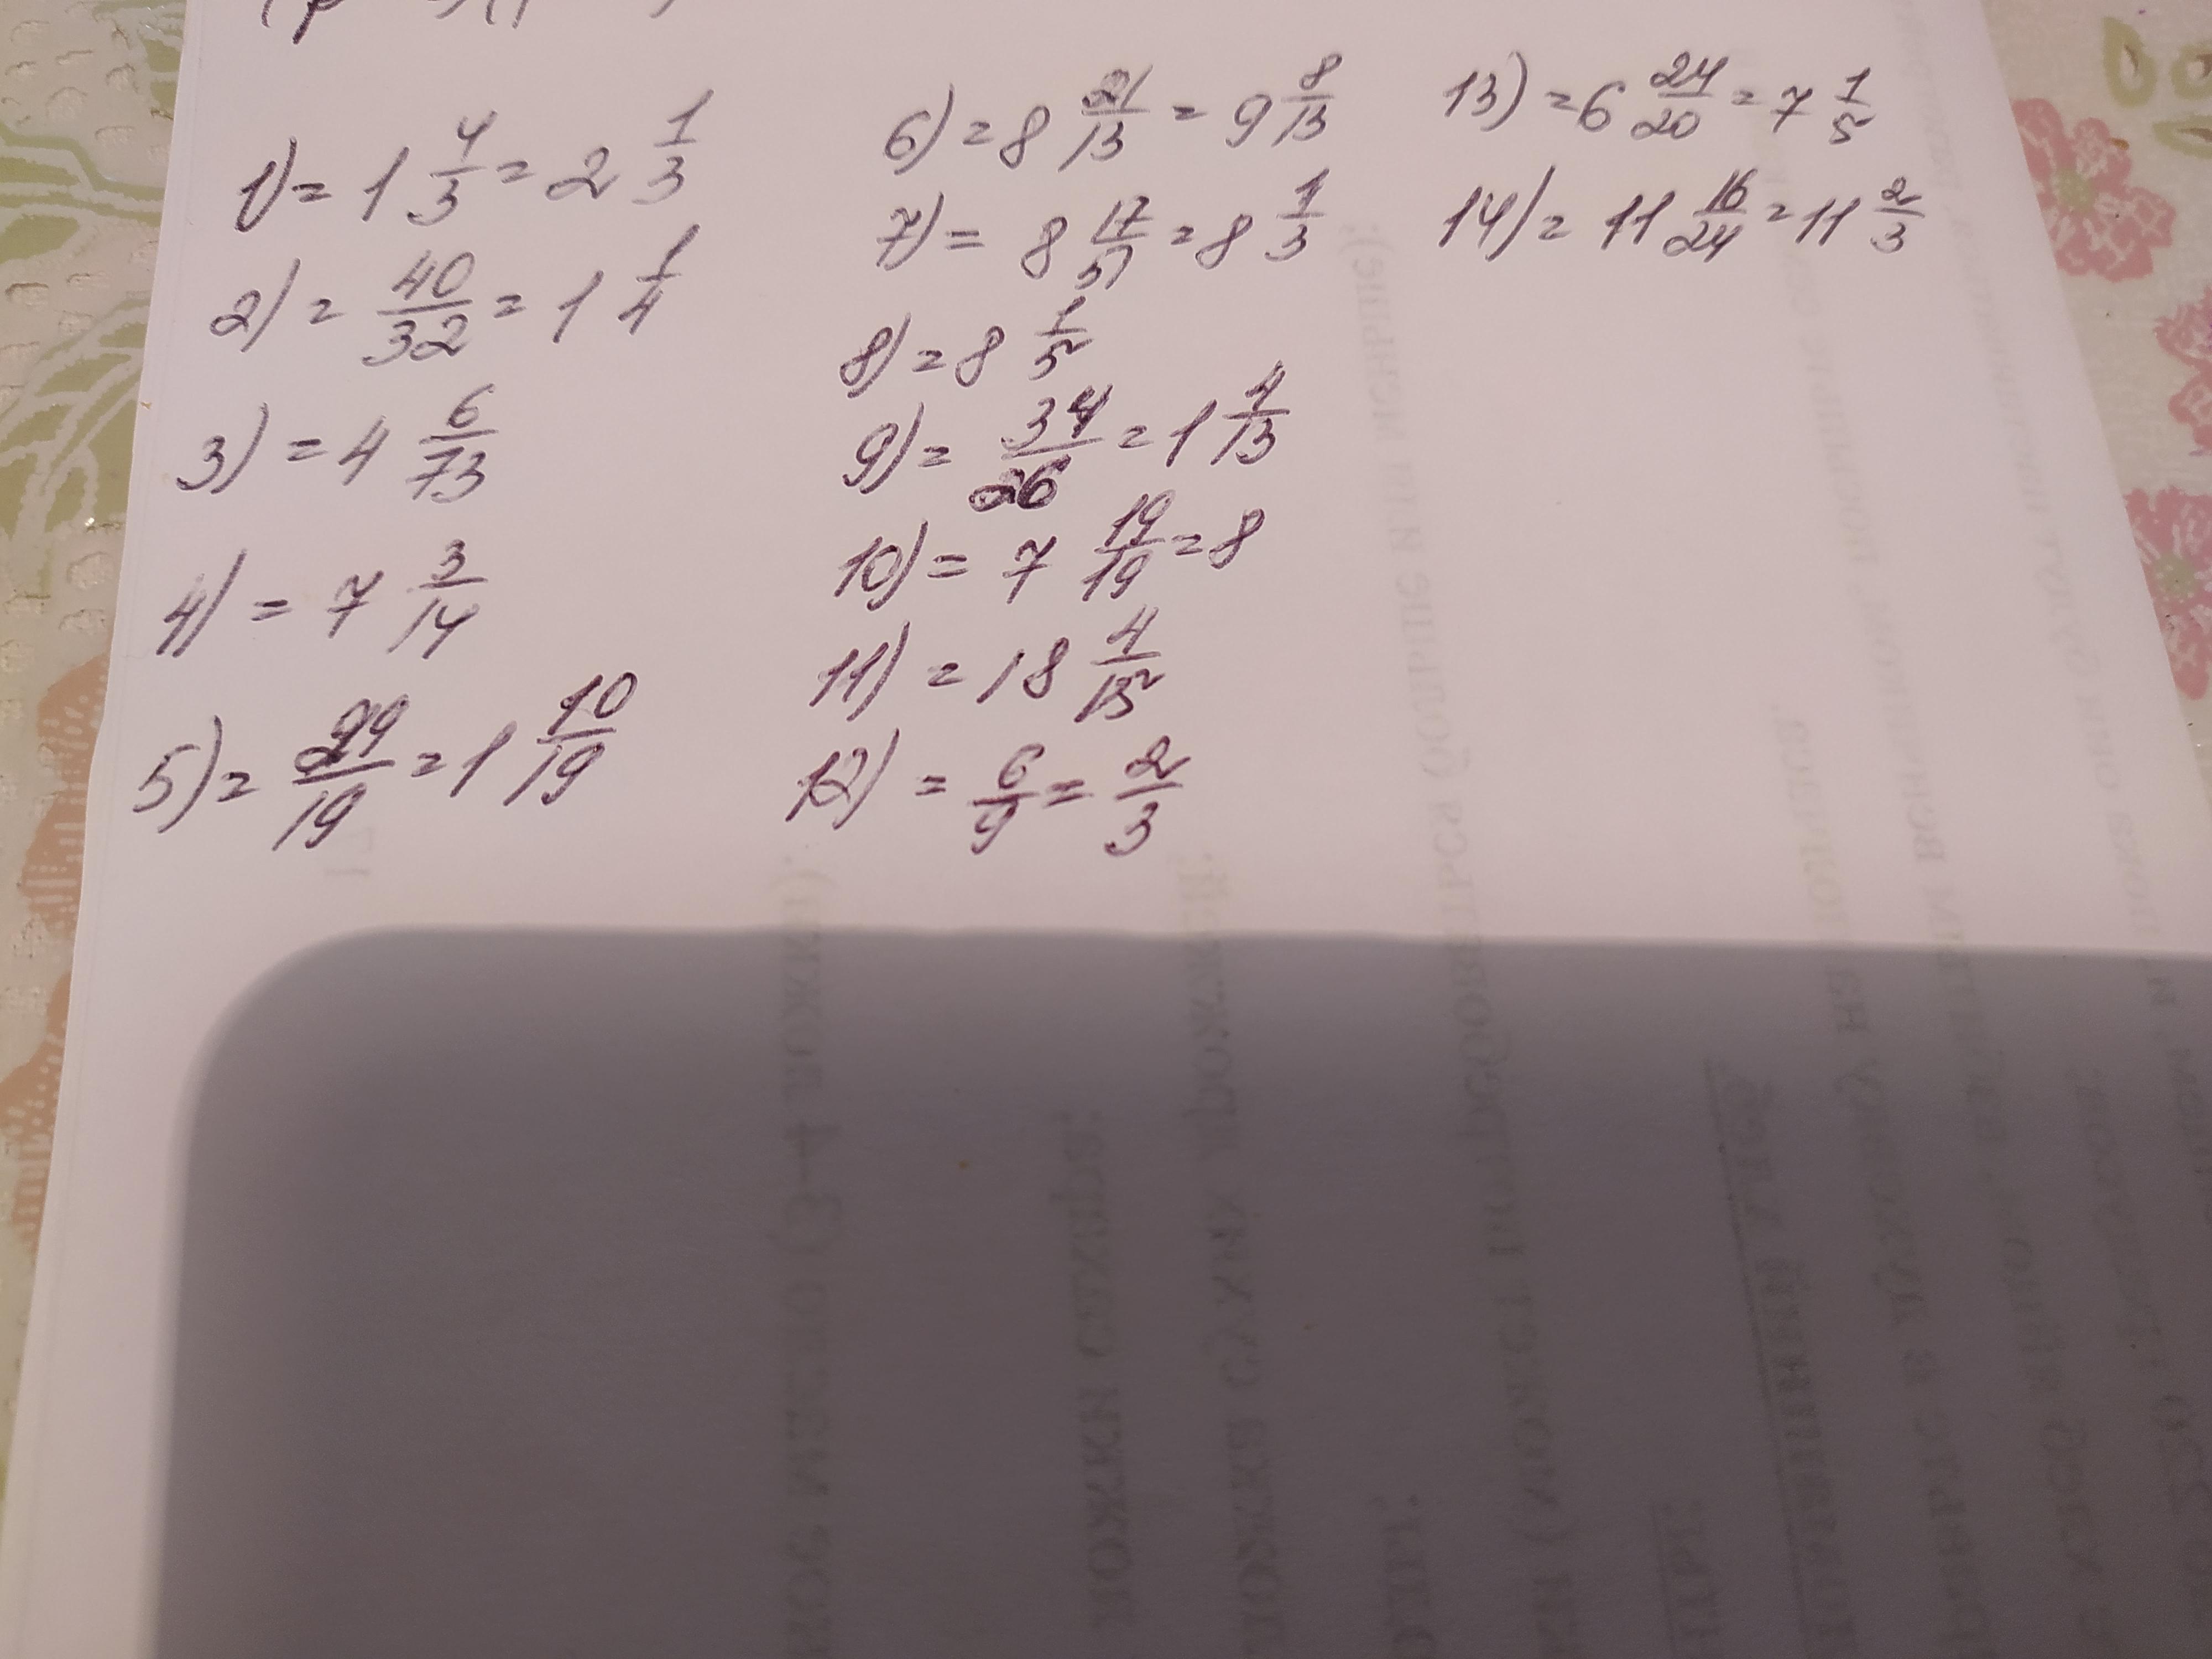 1) = 1 4/3 = 2 1/3
2) = 40/32 = 1 1/4
3) = 4 6/73
4) = 7 3/14
5) = 29/19 = 1 10/19
6) = 8 21/13 = 9 8/13
7) = 8 17/51 = 8 1/3
8) = 8 1/5
9) = 34/26 = 1 4/13
10) = 7 19/19 = 8
11) = 18 4/15
12) = 6/9 = 2/3
13) = 6 24/20 = 7 1/5
14) = 11 16/24 = 11 2/3